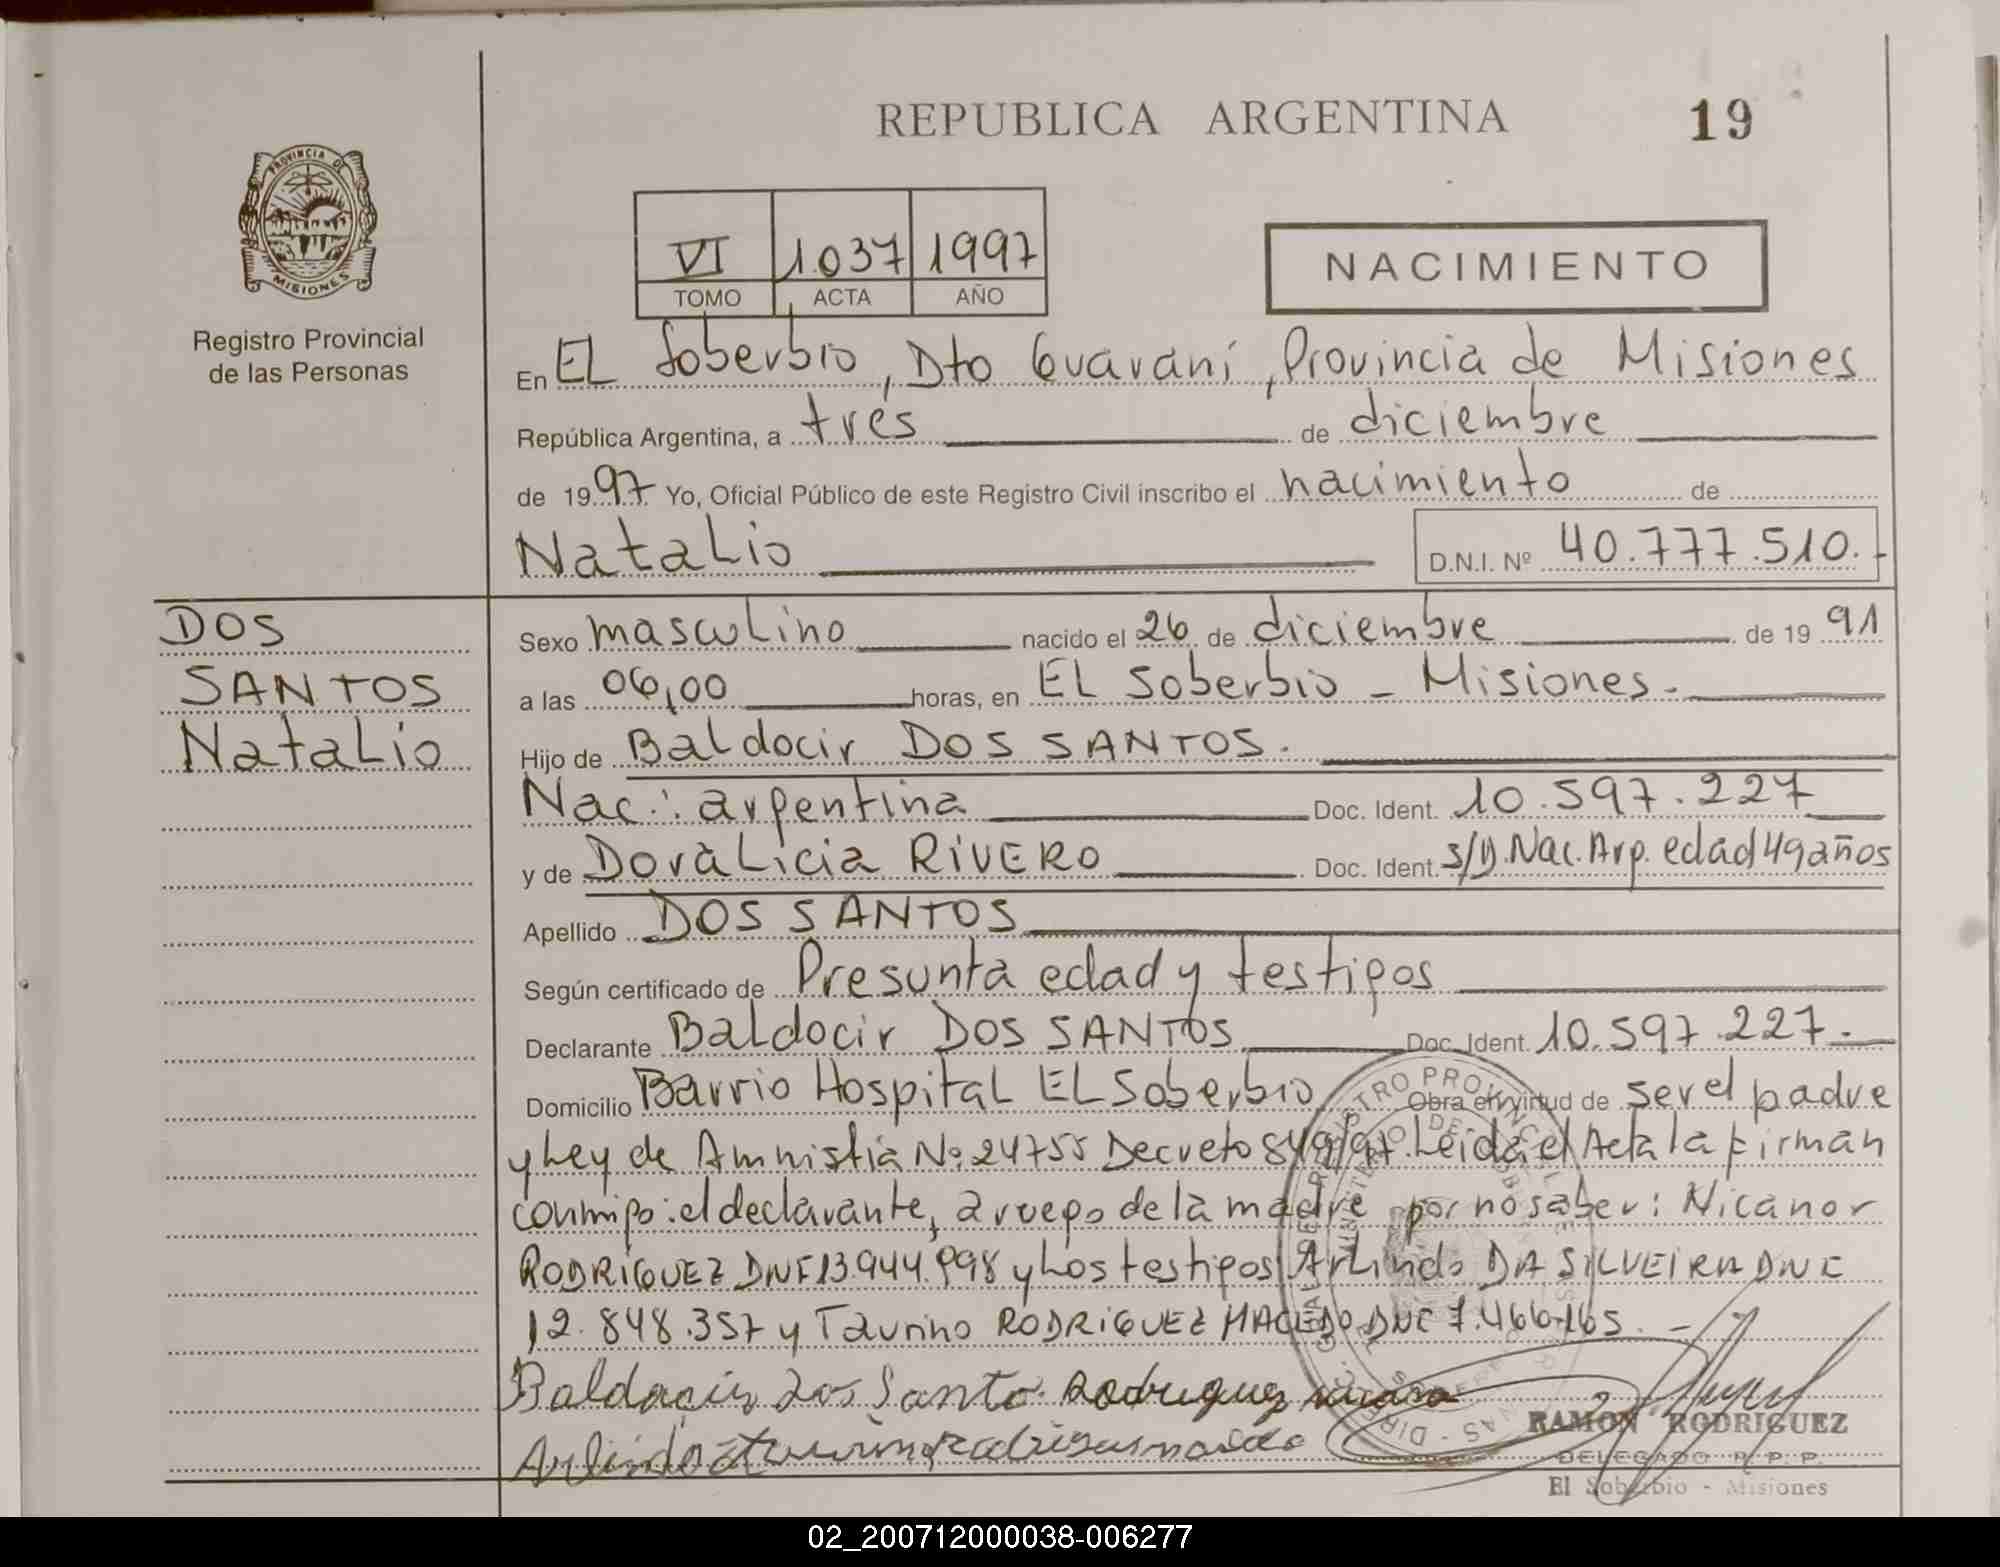 REPUBLICA ARGENTINA
19
PROVINCIA DE
MISIONES
Registro Provincial
de las Personas
VI 1.037 1997
TOMO ACTA AÑO
NACIMIENTO
En EL Soberbio, Dto Guaraní, Provincia de Misiones
República Argentina, a tres de diciembre
de 1997 Yo, Oficial Público de este Registro Civil inscribo el nacimiento de
Natalio
D.N.I. Nº 40.777.510.-
DOS
SANTOS
Natalio
Sexo masculino nacido el 26 de diciembre de 1991
a las 06,00 horas, en EL Soberbio - Misiones.
Hijo de Baldocir DOS SANTOS.
Nac.: argentina Doc. Ident. 10.597.227
y de Doralicia RIVERO Doc. Ident. s/D. Nac. Arg. edad 49 años
Apellido DOS SANTOS
Según certificado de Presunta edad y testigos
Declarante Baldocir DOS SANTOS Doc. Ident. 10.597.227.-
Domicilio Barrio Hospital EL Soberbio Obra en virtud de ser el padre
y Ley de Amnistia Nº 24755 Decreto 849/97. Leida el Acta la firman
conmigo: el declarante, a ruego de la madre por no saber: Nicanor
RODRIGUEZ DNI 13.944.998 y Los testigos Arlindo DA SILVEIRA DNI
12.848.357 y Taurino RODRIGUEZ MACEDO DNI 7.466.165. -
Baldocir Dos Santo Rodriguez
Arlindo
RAMON RODRIGUEZ
DELEGADO R. P. P.
El Soberbio - Misiones
02_200712000038-006277